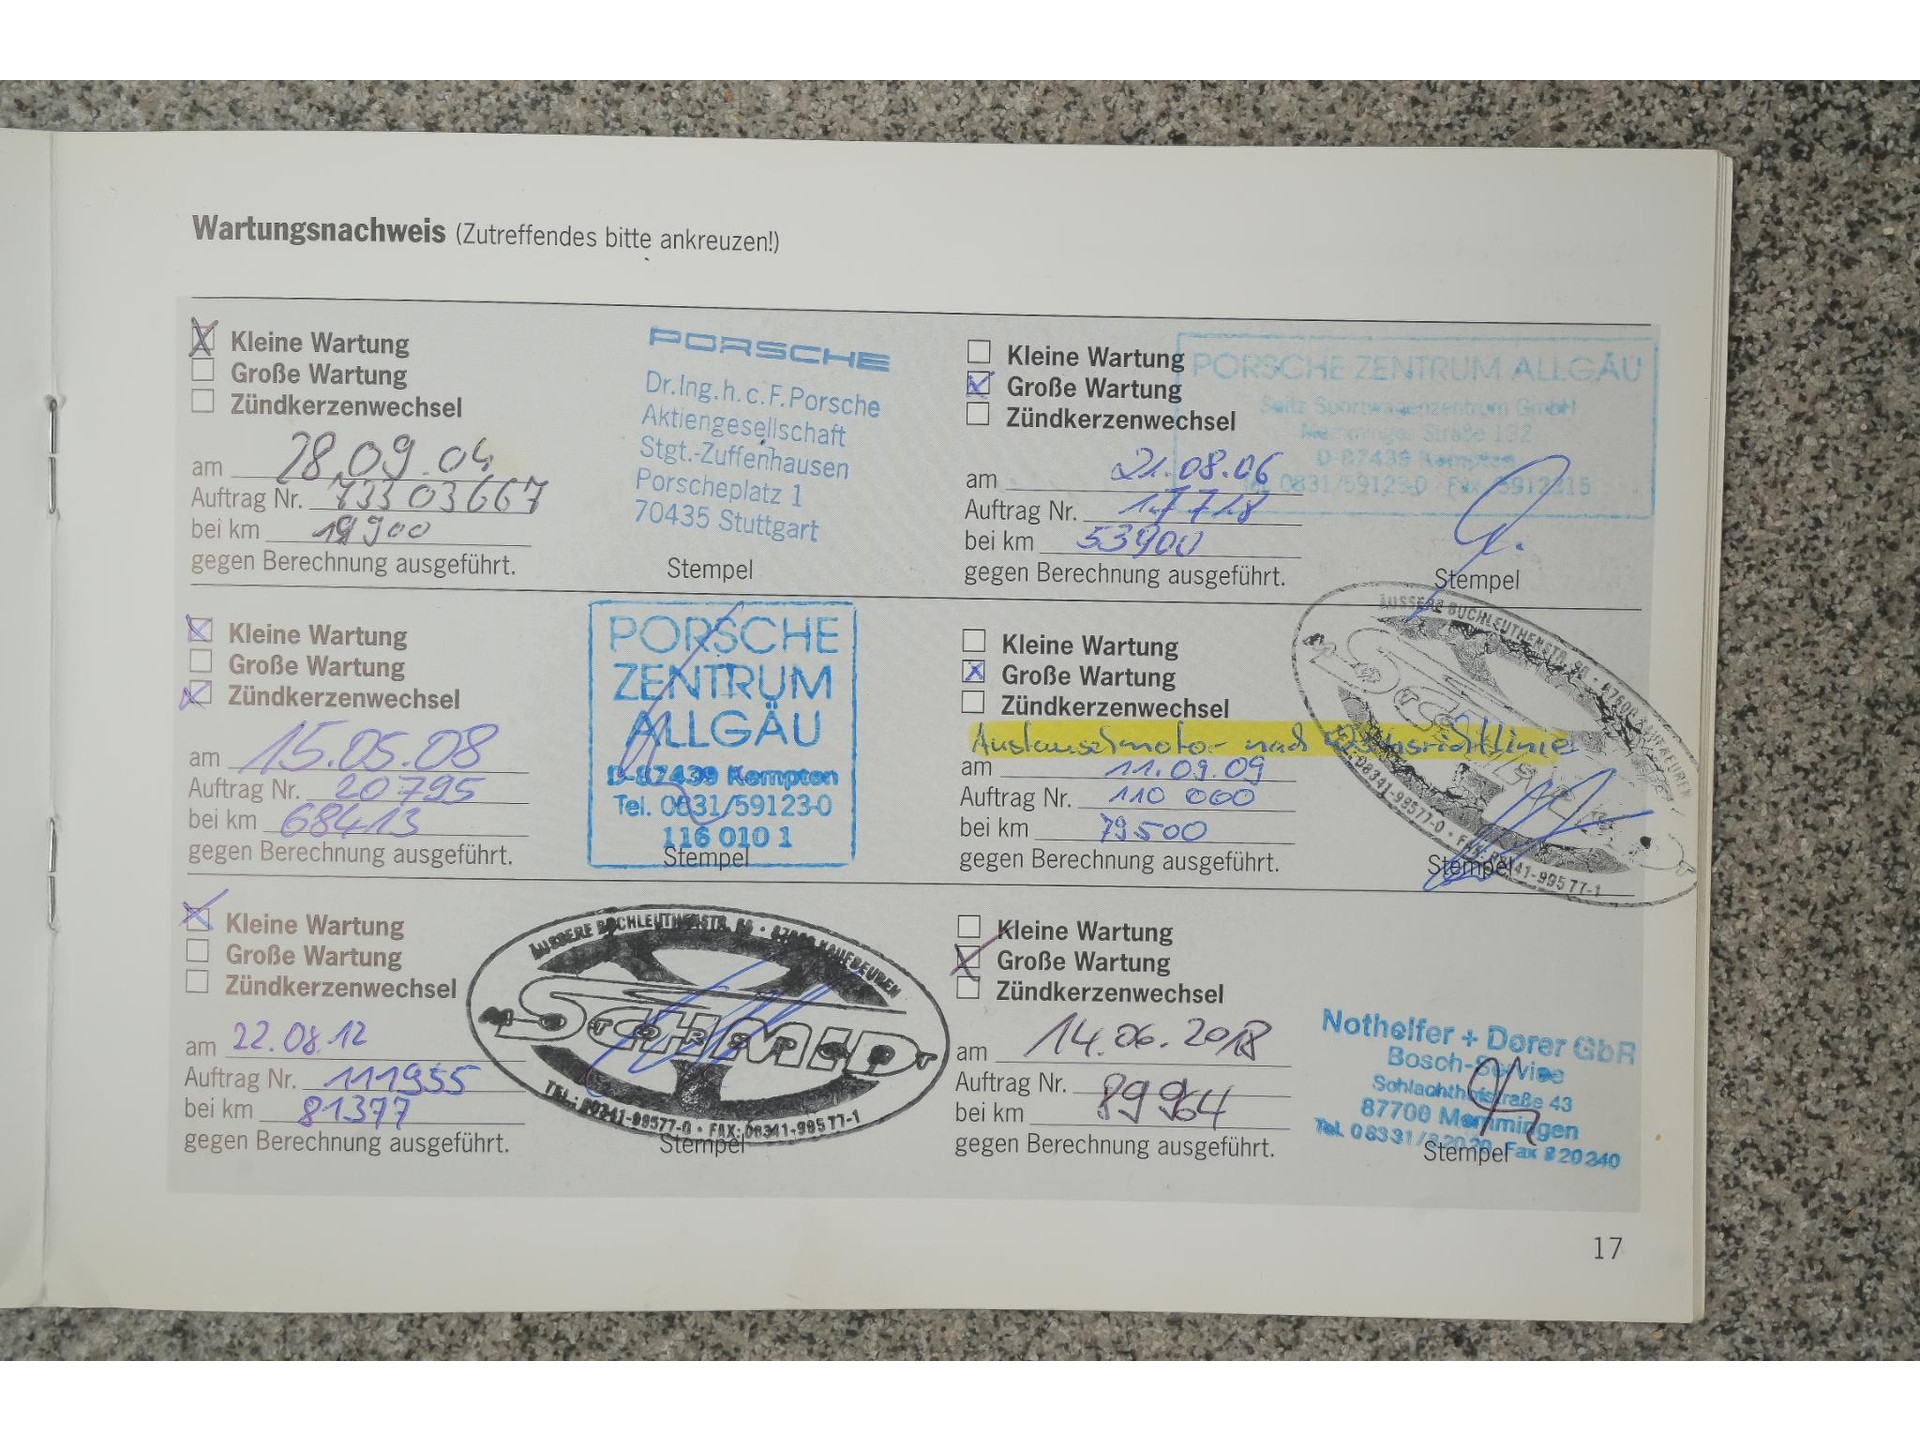 Wartungsnachweis (Zutreffendes bitte ankreuzen!)
Kleine Wartung
Große Wartung
Zündkerzenwechsel
am 28.09.04
Auftrag Nr. 73303667
bei km 19900
gegen Berechnung ausgeführt.
PORSCHE
Dr.Ing.h.c.F.Porsche
Aktiengesellschaft
Stgt.-Zuffenhausen
Porscheplatz 1
70435 Stuttgart
Stempel
Kleine Wartung
Große Wartung
Zündkerzenwechsel
am 21.08.06
Auftrag Nr. 17718
bei km 53900
gegen Berechnung ausgeführt.
PORSCHE ZENTRUM ALLGÄU
Seitz Sportwagenzentrum GmbH
Memminger Straße 132
D-87439 Kempten
Tel. 0831/59123-0 Fax 5912315
Stempel
Kleine Wartung
Große Wartung
Zündkerzenwechsel
am 15.05.08
Auftrag Nr. 20795
bei km 68413
gegen Berechnung ausgeführt.
PORSCHE
ZENTRUM
ALLGÄU
D-87439 Kempten
Tel. 0831/59123-0
116 010 1
Stempel
Kleine Wartung
Große Wartung
Zündkerzenwechsel
Austauschmotor nach
am 11.09.09
Auftrag Nr. 110 000
bei km 79500
gegen Berechnung ausgeführt.
ÄUSSERE BUCHLEUTHENSTR. 60 · 87600 KAUFBEUREN
SCHMID
MOTORSPORT
TEL.: 08341-99577-0 · FAX: 08341-99577-1
Stempel
Kleine Wartung
Große Wartung
Zündkerzenwechsel
am 22.08.12
Auftrag Nr. 111955
bei km 81377
gegen Berechnung ausgeführt.
ÄUSSERE BUCHLEUTHENSTR. 60 · 87600 KAUFBEUREN
SCHMID
MOTORSPORT
TEL.: 08341-99577-0 · FAX: 08341-99577-1
Stempel
Kleine Wartung
Große Wartung
Zündkerzenwechsel
am 14.06.2018
Auftrag Nr.
bei km 89964
gegen Berechnung ausgeführt.
Nothelfer + Dorer GbR
Bosch-Service
Schlachthofstraße 43
87700 Memmingen
Tel. 08331/82020 Fax 820240
Stempel
17